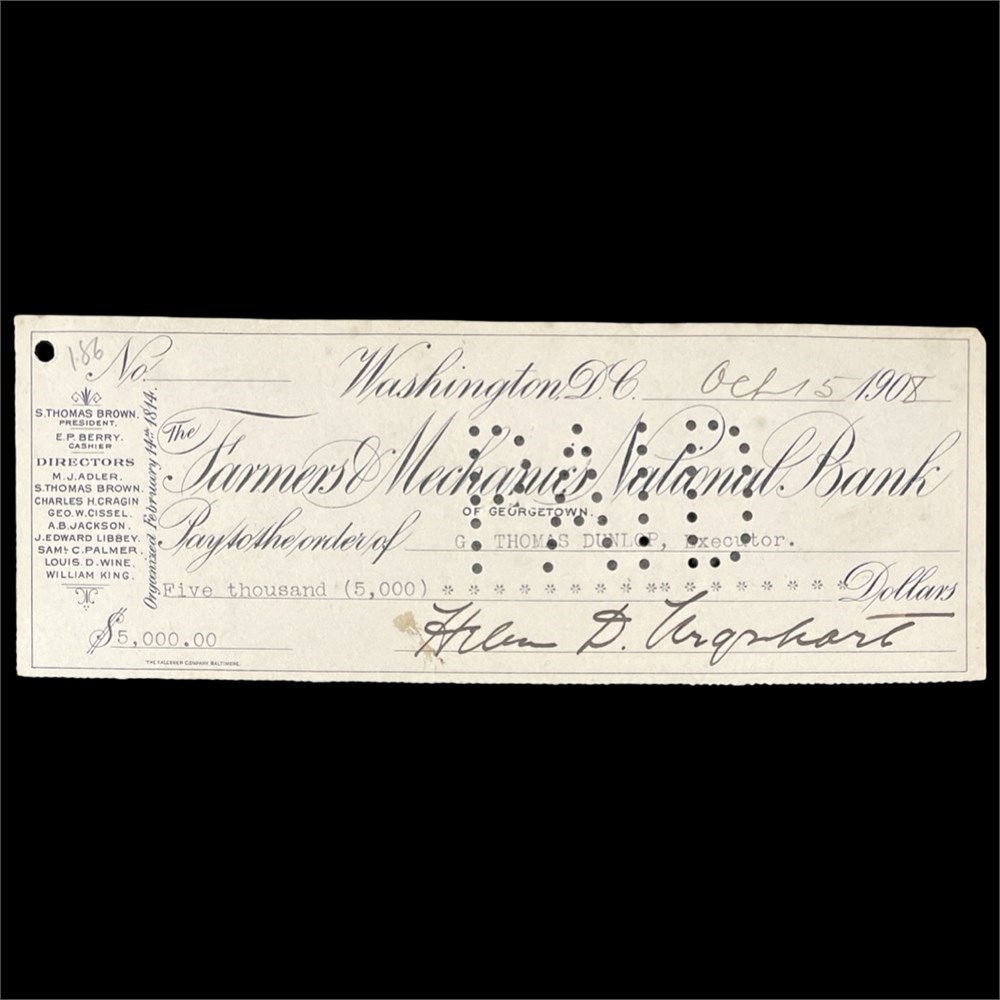 186
No.
Washington, D.C. Oct 15 1908
S. THOMAS BROWN,
PRESIDENT,
E.P. BERRY,
CASHIER
DIRECTORS
M.J. ADLER,
S. THOMAS BROWN,
CHARLES H. CRAGIN
GEO. W. CISSEL,
A.B. JACKSON,
J. EDWARD LIBBEY,
SAML C. PALMER,
LOUIS. D. WINE,
WILLIAM KING.
Organized February 14th 1814.
The
Farmers & Mechanics National Bank
OF GEORGETOWN.
PAID
Pay to the order of G. THOMAS DUNLOP, Executor.
Five thousand (5,000) * * * * * * * * * * * * * * * * * * * * * * Dollars
$5,000.00
Helen D. Urquhart
THE FALCONER COMPANY, BALTIMORE.